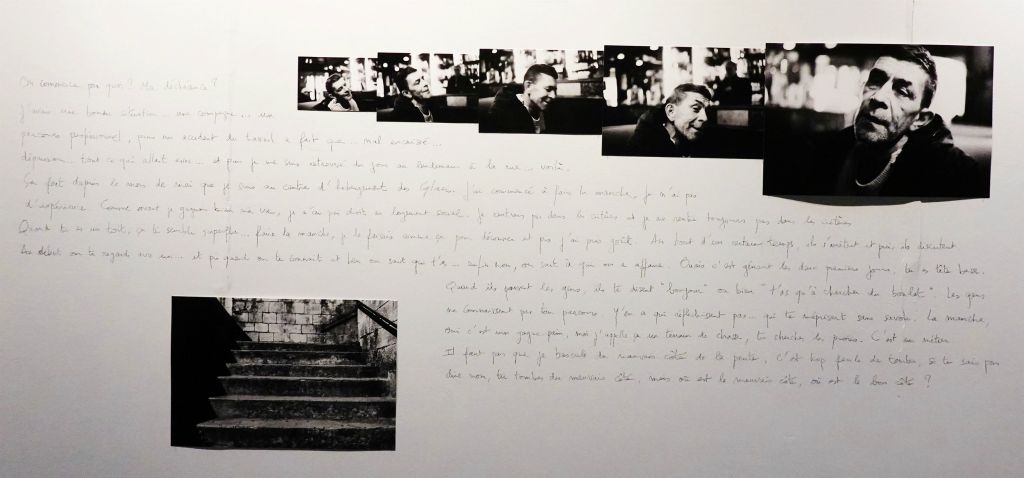 On commence par quoi ? Ma déchéance ?
J'avais une bonne situation... une compagne... un
parcours professionnel, puis un accident du travail a fait que... mal encaissé...
dépression... tout ce qui allait avec... et puis je me suis retrouvé du jour au lendemain à la rue... voilà.
Ça fait depuis le mois de mai que je suis au centre d'hébergement des Glacis. J'ai commencé à faire la manche, je n'ai pas
d'expérience. Comme avant je gagnais bien ma vie, je n'ai pas droit au logement social. Je rentrais pas dans les critères et je ne rentre toujours pas dans les critères
Quand tu as un toit, ça te semble superflu... faire la manche, je le faisais comme ça pour découvrir et puis j'ai pris goût. Au bout d'un certain temps, ils s'arrêtent et puis, ils discutent
Au début on te regarde avec un... et puis quand on te connaît et bien on sait que t'es... enfin non, on sait à qui on a affaire. Ouais c'est gênant les deux premiers jours, tu as tête basse.
Quand ils passent les gens, ils te disent "bonjour" ou bien "t'as qu'à chercher du boulot". Les gens
ne connaissent pas ton parcours. Y'en a qui réfléchissent pas... qui te méprisent sans savoir. La manche,
oui c'est un gagne-pain, moi j'appelle ça un terrain de chasse, tu cherches la proie. C'est un métier.
Il faut pas que je bascule du mauvais côté de la pente, c'est trop facile de tomber, si tu sais pas
dire non, tu tombes du mauvais côté, mais où est le mauvais côté, où est le bon côté ?